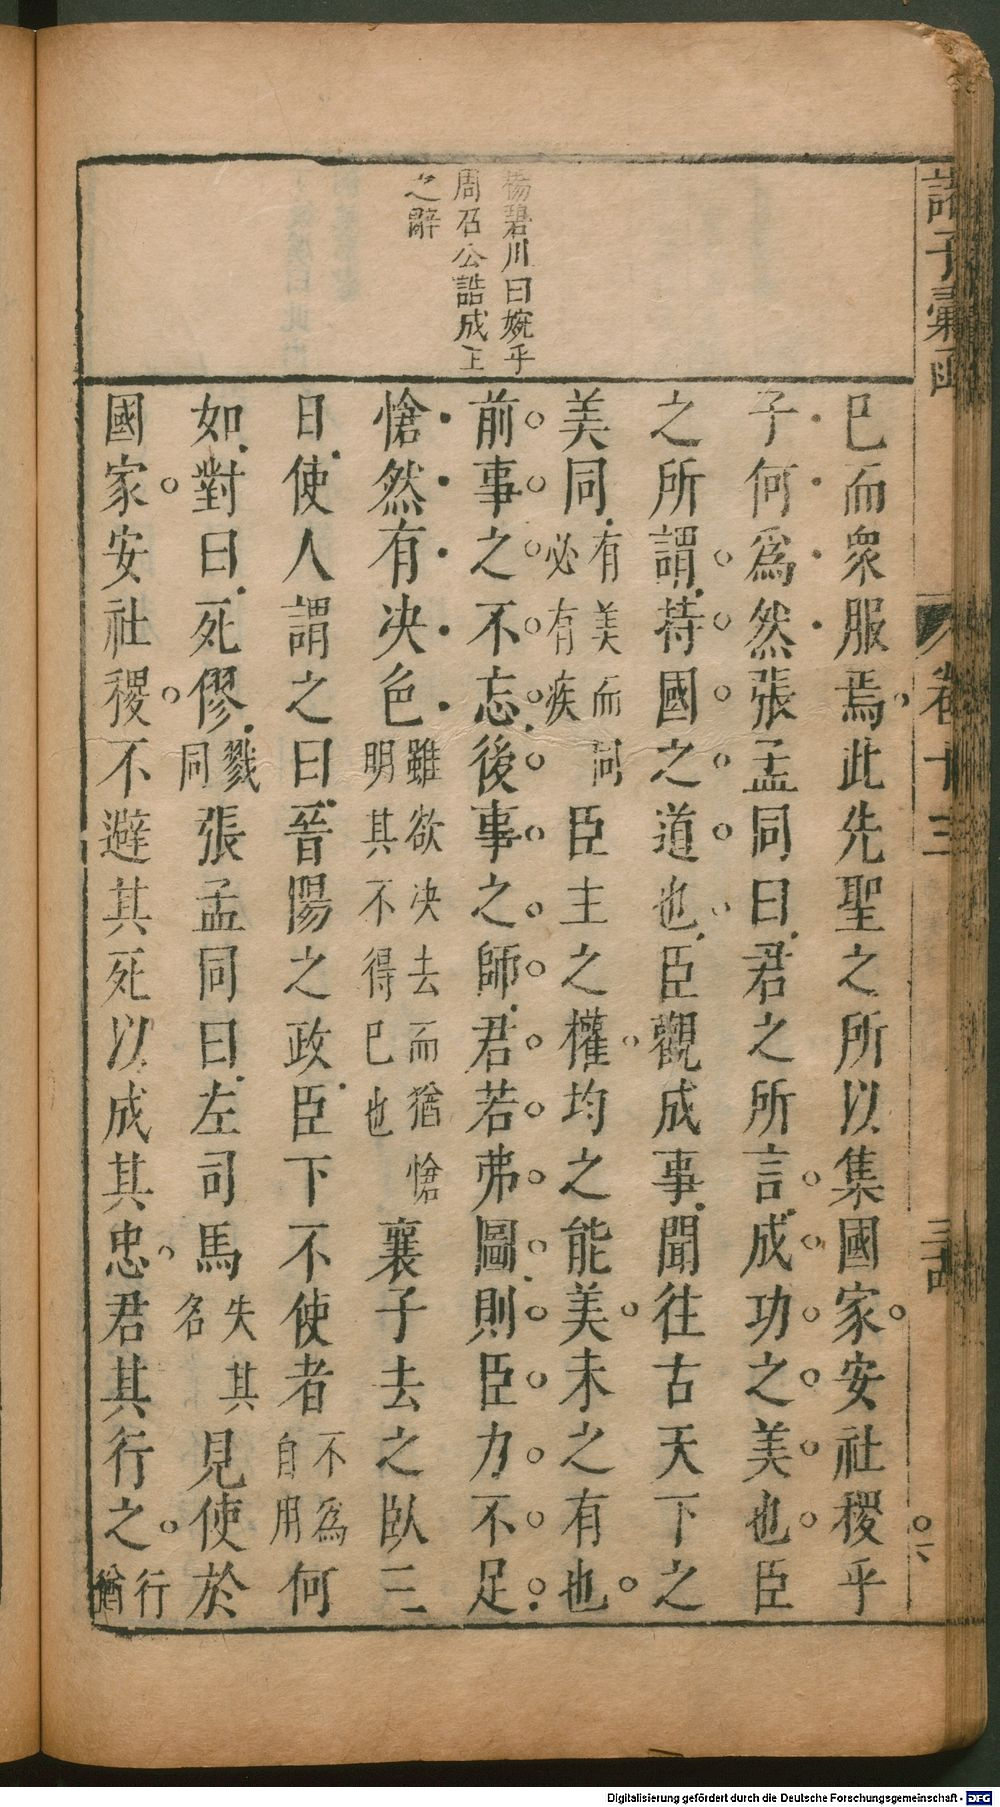 諸子彙函
卷十三
楊碧川曰婉乎
周召公誥成王
之辭
已而衆服焉此先聖之所以集國家安社稷乎
子何爲然張孟同曰君之所言成功之美也臣
之所謂持國之道也臣觀成事聞往古天下之
美同有美而同必有疾臣主之權均之能美未之有也
前事之不忘後事之師君若弗圖則臣力不足
愴然有决色雖欲决去而猶愴明其不得已也襄子去之臥三
日使人謂之曰晉陽之政臣下不使者不爲自用何
如對曰死僇戮同張孟同曰左司馬失其名見使於
國家安社稷不避其死以成其忠君其行之行猶
Digitalisierung gefördert durch die Deutsche Forschungsgemeinschaft - DFG